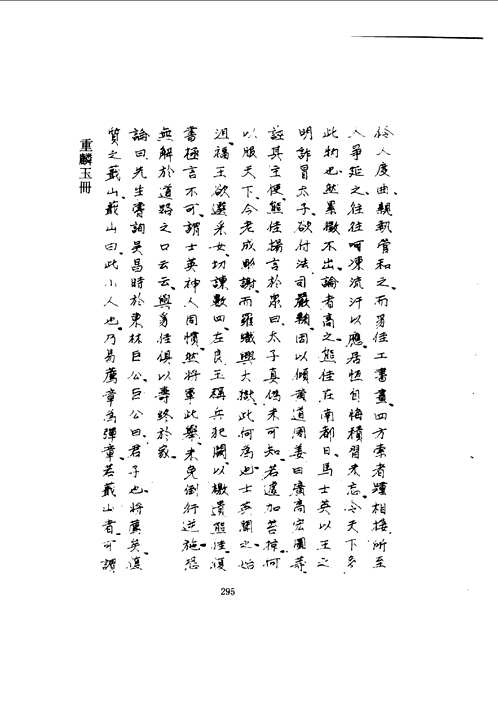 伶人度曲親執管和之而易佳工書畫四方索者踵相接所至
人爭延之往往呵凍流汗以應居恆自悔積習未忘今天下多
此物也然累檄不出論者高之熊佳在南都日馬士英以王之
明詐冒太子欲付法司嚴鞫因以傾黃道周姜曰廣高宏圖等
誣其主使熊佳揚言於衆曰太子真偽未可知若遽加苦掉何
以服天下今老成凋謝而羅織興大獄此何為也士英聞之始
沮福王欲選采女切諫數四左良玉稱兵犯闕以檄遺熊佳復
書極言不可謂士英神人同憤然將軍此舉未免倒行逆施恐
無解於道路之口云云與易佳俱以壽終於家
論曰先生嘗詢吳昌時於東林巨公巨公曰君子也將薦英復
質之蕺山蕺山曰此小人也乃易薦章為彈章若蕺山者可謂
重麟玉冊
295